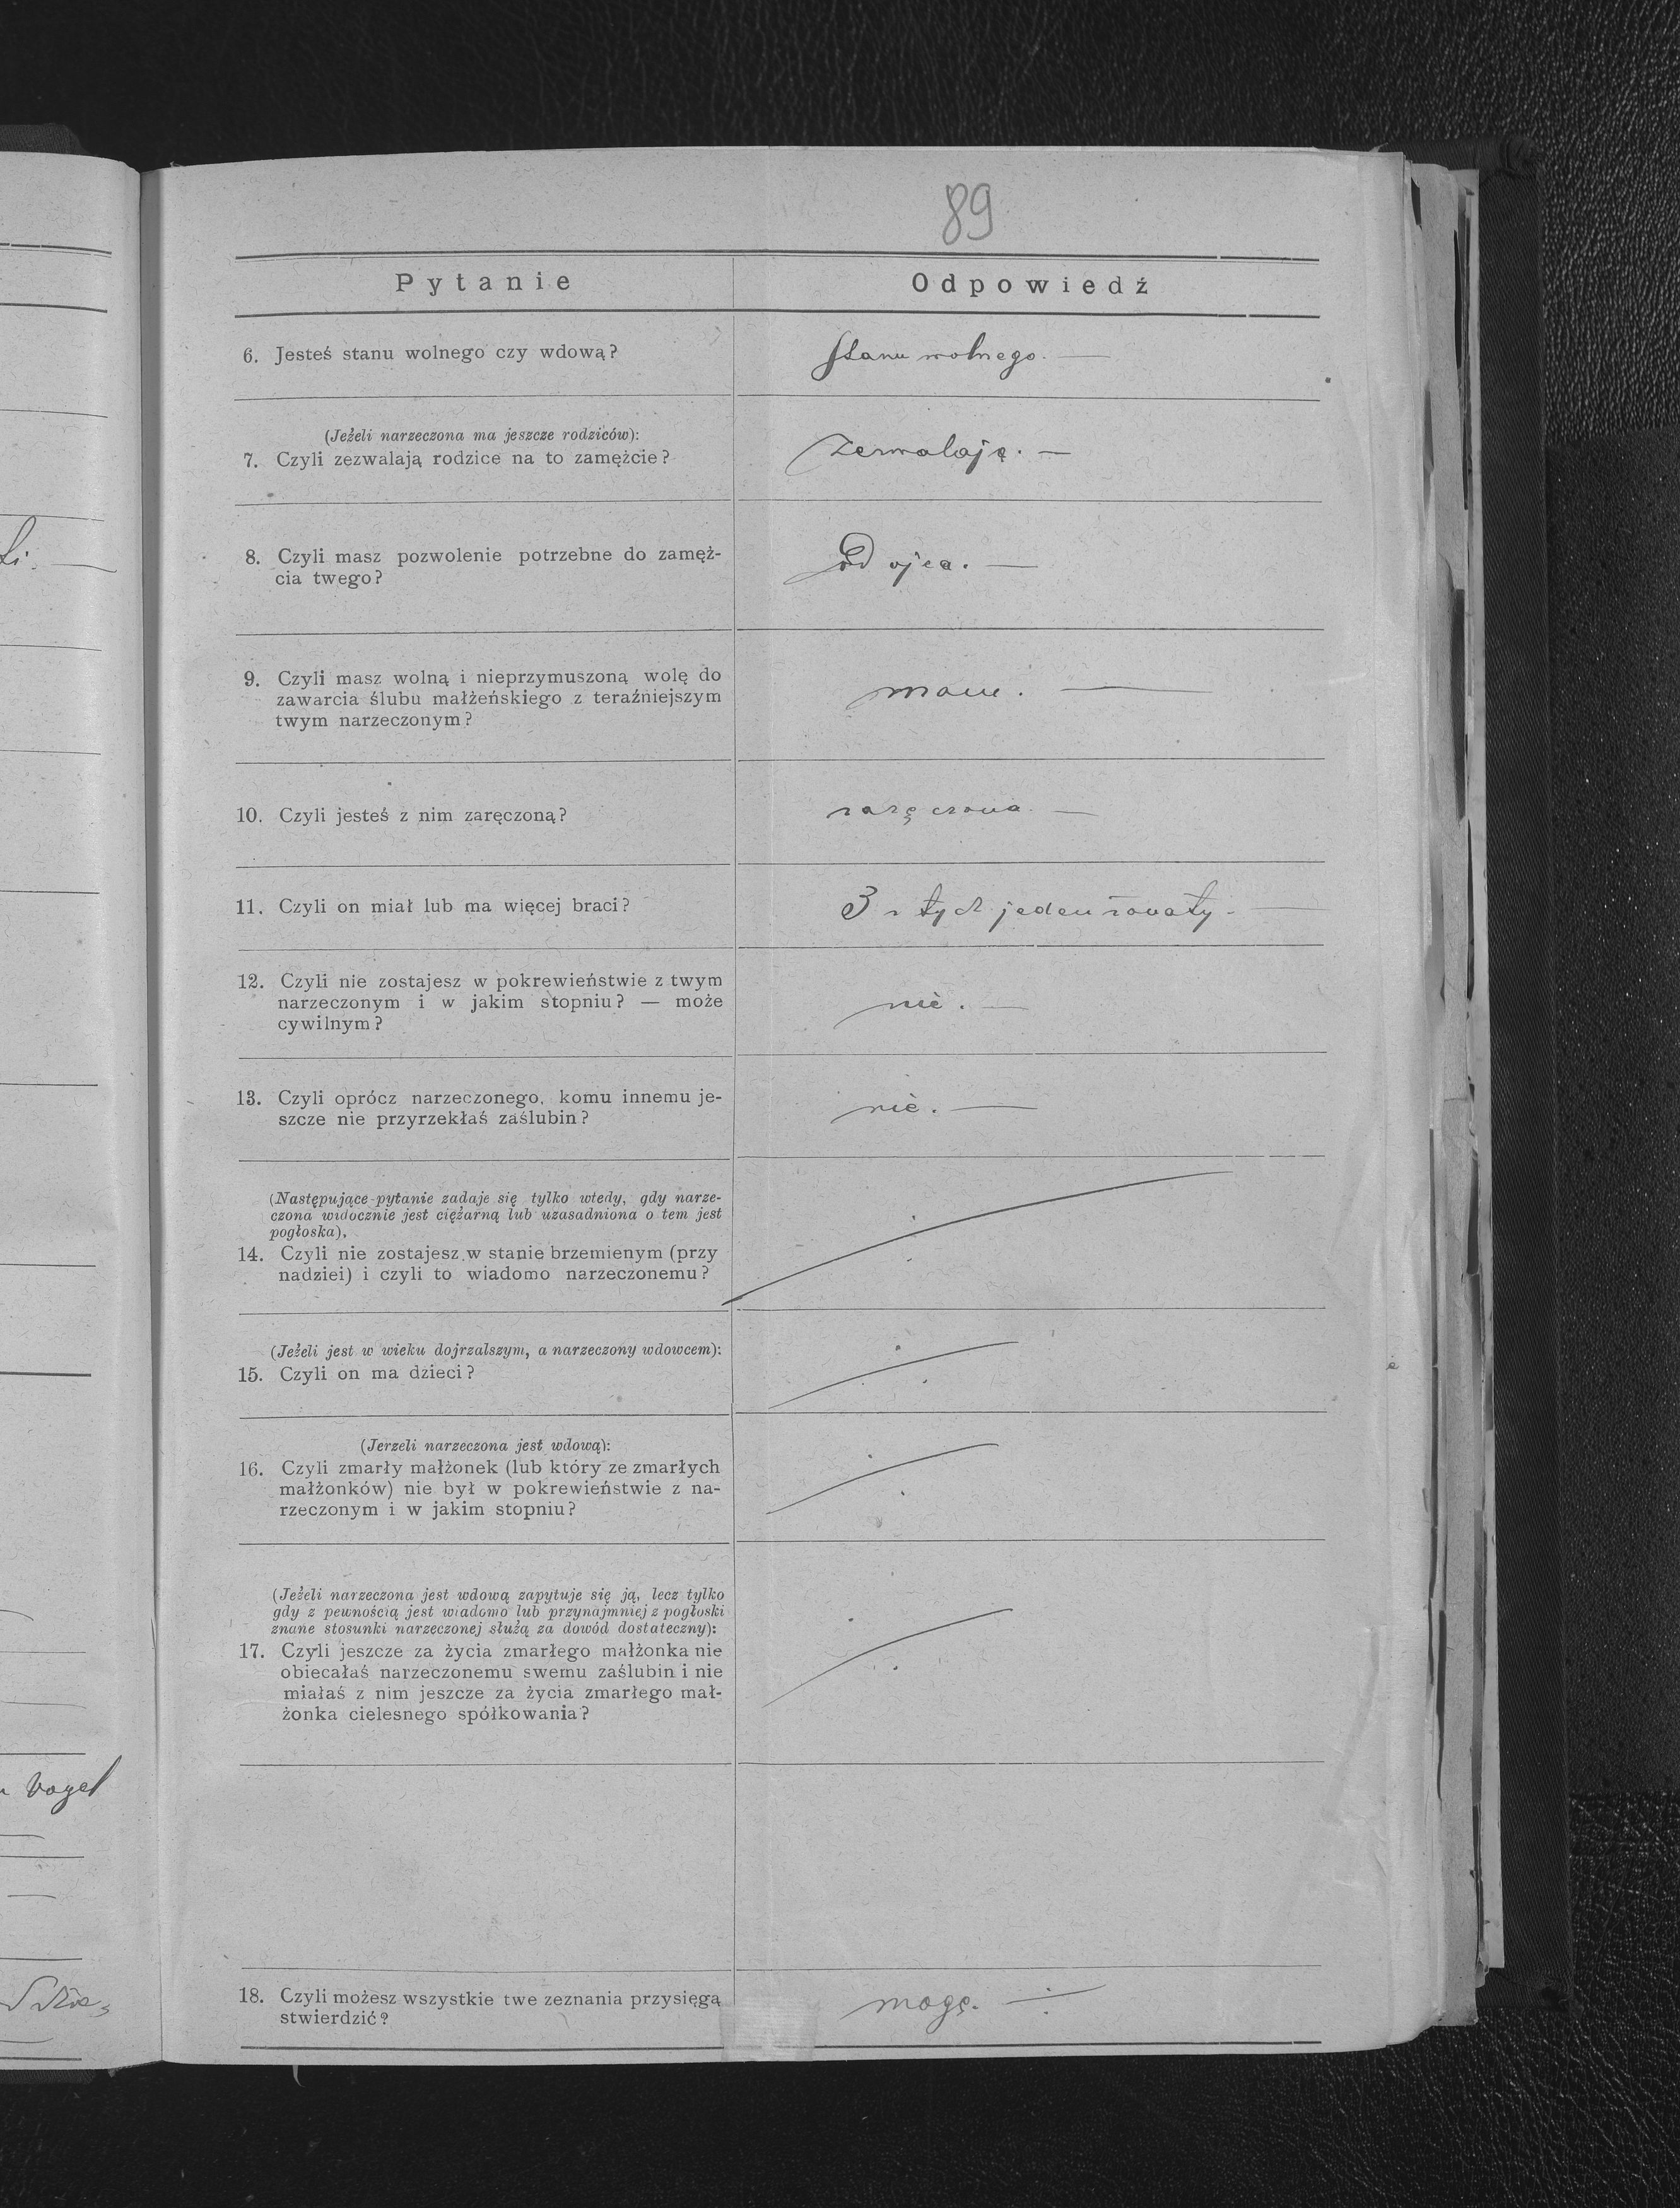 89
Pytanie
Odpowiedź
6. Jesteś stanu wolnego czy wdową?
Stanu wolnego. —
(Jeżeli narzeczona ma jeszcze rodziców):
7. Czyli zezwalają rodzice na to zamężcie?
Zezwalają. —
8. Czyli masz pozwolenie potrzebne do zamęż-
cia twego?
Od ojca. —
9. Czyli masz wolną i nieprzymuszoną wolę do
zawarcia ślubu małżeńskiego z teraźniejszym
twym narzeczonym?
mam. —
10. Czyli jesteś z nim zaręczoną?
zaręczona —
11. Czyli on miał lub ma więcej braci?
3 z tych jeden żonaty. —
12. Czyli nie zostajesz w pokrewieństwie z twym
narzeczonym i w jakim stopniu? — może
cywilnym?
nie. —
13. Czyli oprócz narzeczonego, komu innemu je-
szcze nie przyrzekłaś zaślubin?
nie. —
(Następujące pytanie zadaje się tylko wtedy, gdy narze-
czona widocznie jest ciężarną lub uzasadniona o tem jest
pogłoska),
14. Czyli nie zostajesz w stanie brzemienym (przy
nadziei) i czyli to wiadomo narzeczonemu?
(Jeżeli jest w wieku dojrzalszym, a narzeczony wdowcem):
15. Czyli on ma dzieci?
(Jerzeli narzeczona jest wdową):
16. Czyli zmarły małżonek (lub który ze zmarłych
małżonków) nie był w pokrewieństwie z na-
rzeczonym i w jakim stopniu?
(Jeżeli narzeczona jest wdową zapytuje się ją, lecz tylko
gdy z pewnością jest wiadomo lub przynajmniej z pogłoski
znane stosunki narzeczonej służą za dowód dostateczny):
17. Czyli jeszcze za życia zmarłego małżonka nie
obiecałaś narzeczonemu swemu zaślubin i nie
miałaś z nim jeszcze za życia zmarłego mał-
żonka cielesnego spółkowania?
Vogel
18. Czyli możesz wszystkie twe zeznania przysięgą
stwierdzić?
mogę.